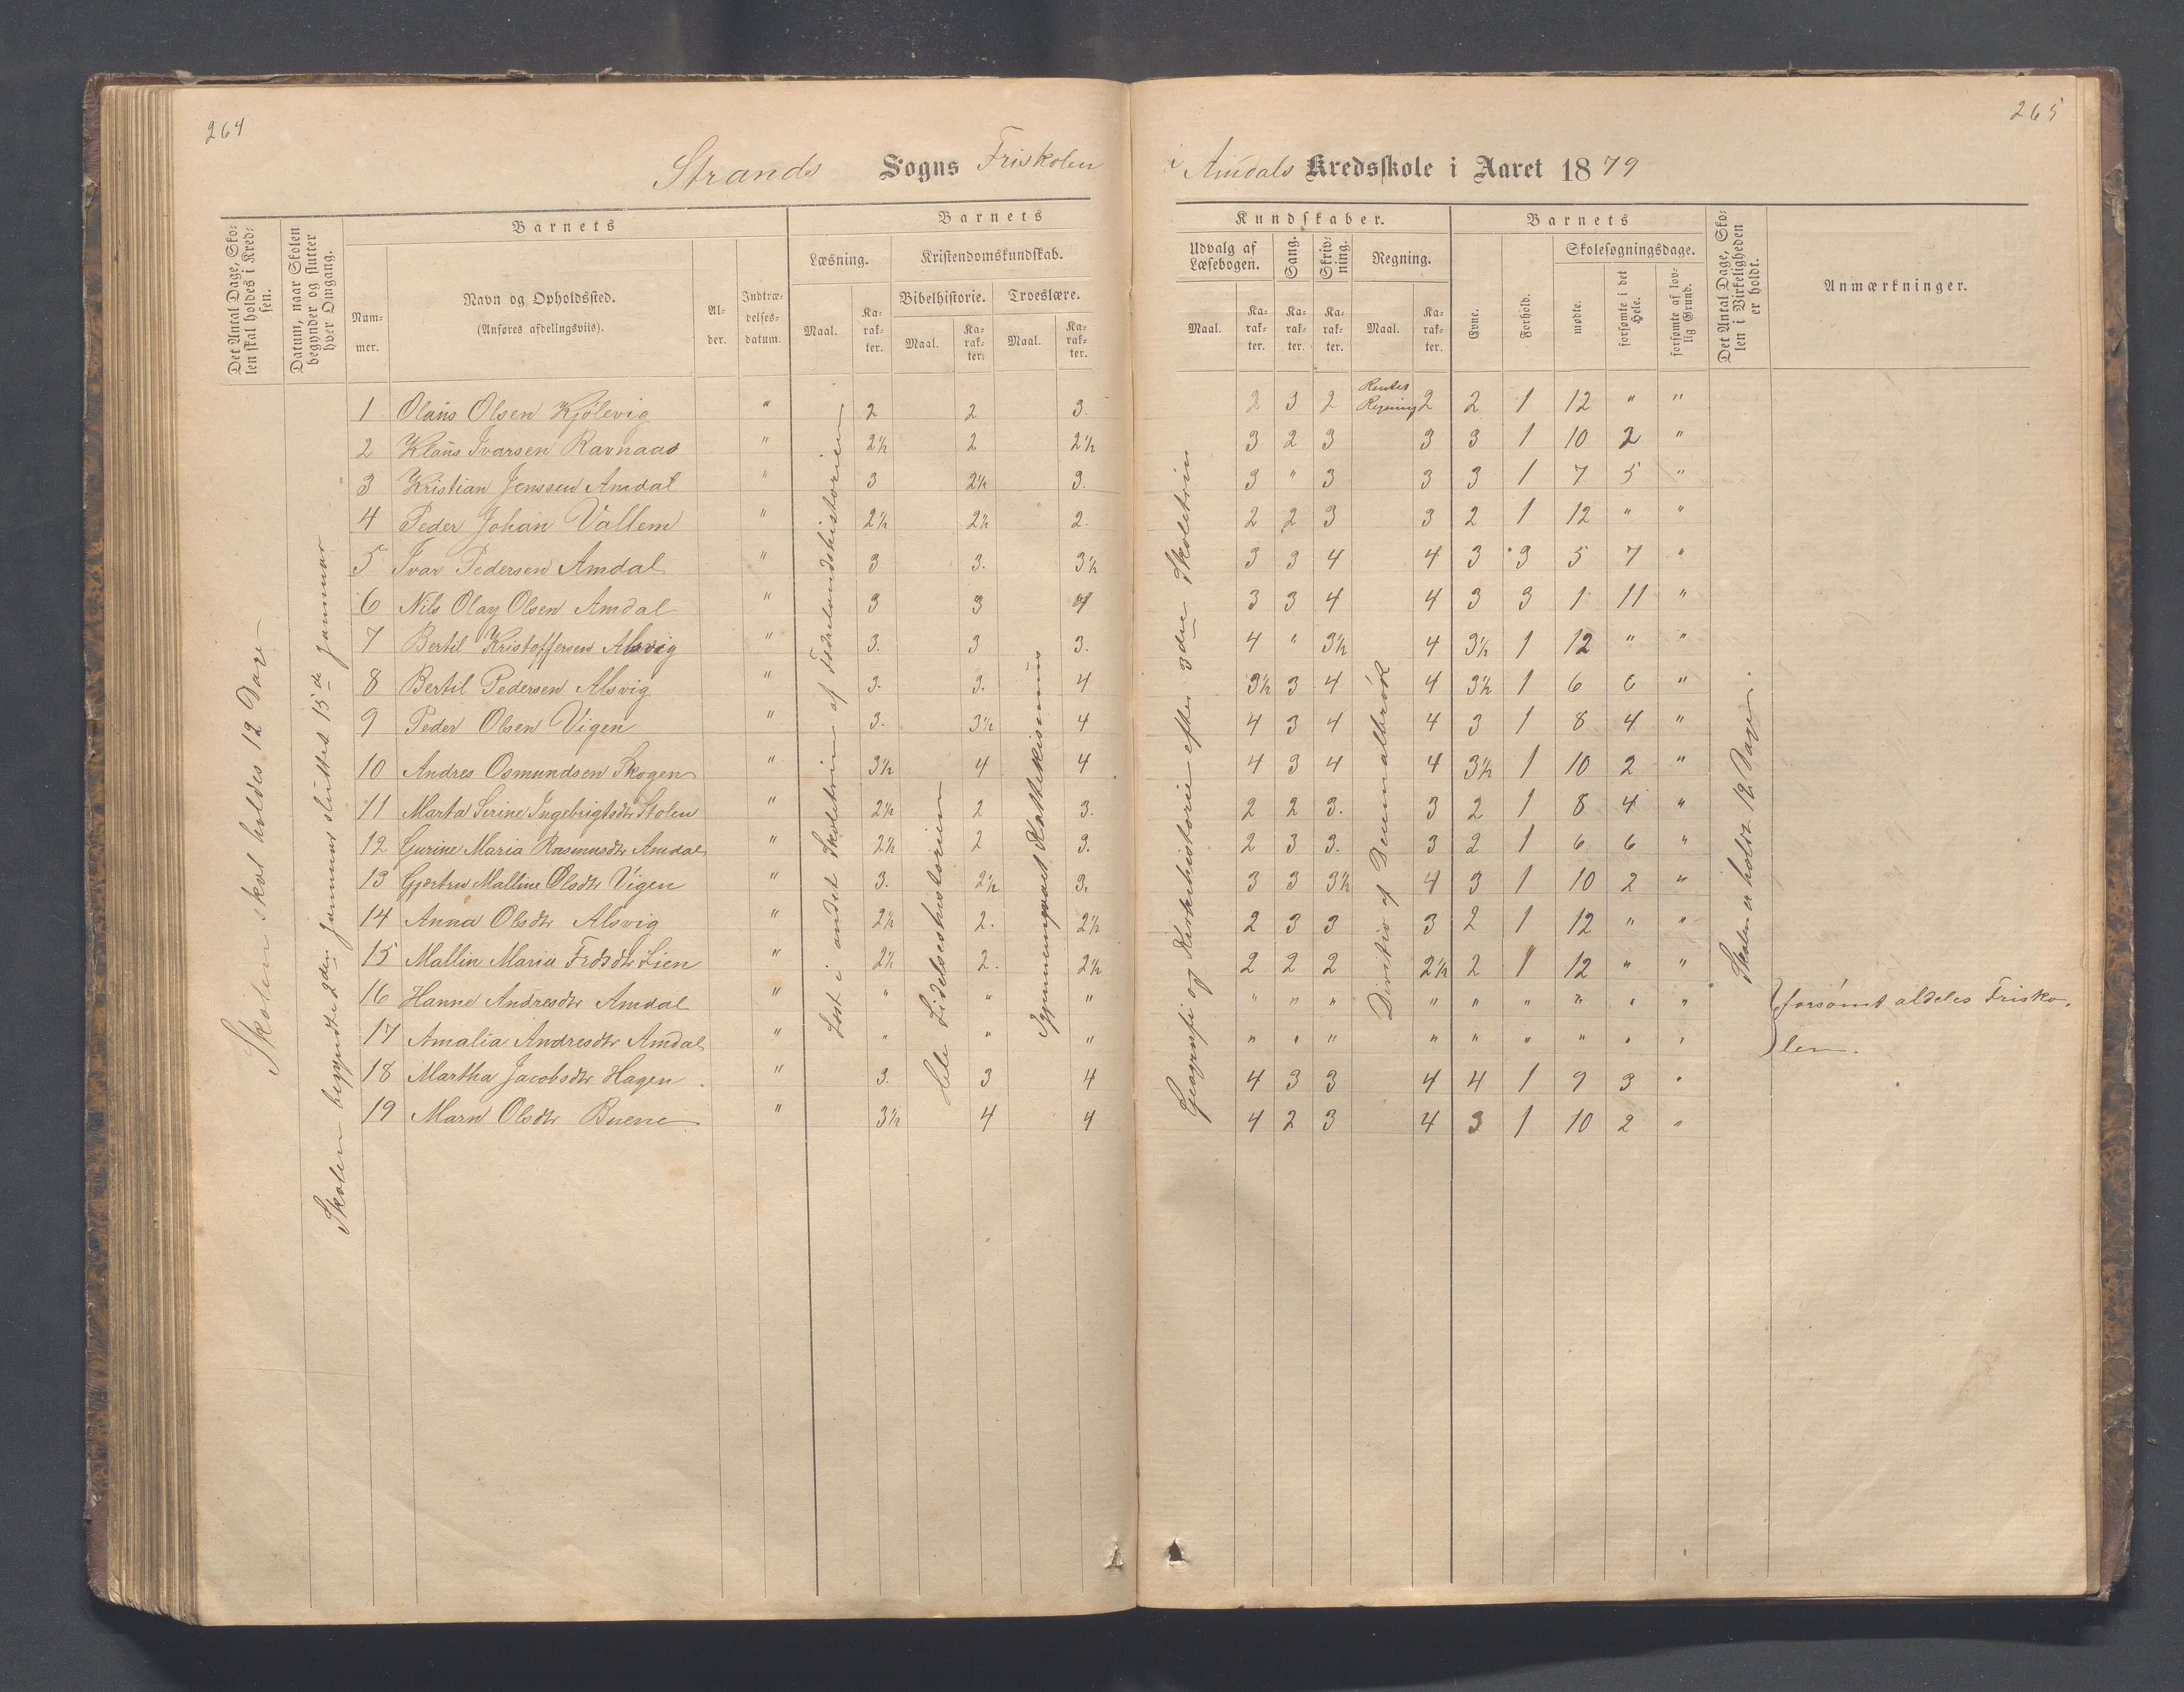 264
265
Strands Sogns Friskolen
i Amdals Kredsskole i Aaret 1879
Det Antal Dage, Skolen skal holdes i Kredsen.
Datum, naar Skolen begynder og slutter hver Omgang.
Barnets
Nummer.
Navn og Opholdssted.
(Anføres afdelingsviis).
Alder.
Indtrædelsesdatum.
Barnets
Læsning.
Kristendomskundskab.
Bibelhistorie.
Troeslære.
Maal.
Karakter.
Maal.
Karakter.
Maal.
Karakter.
Kundskaber.
Udvalg af Læsebogen.
Sang.
Skrivning.
Regning.
Maal.
Karakter.
Karakter.
Karakter.
Maal.
Karakter.
Barnets
Evne.
Forhold.
Skolesøgningsdage.
mødte.
forsømte i det Hele.
forsømte af lovlig Grund.
Det Antal Dage, Skolen i Virkeligheden er holdt.
Anmærkninger.
Skolen skal holdes 12 Dage
Skolen begyndte 2den Januar sluttet 15de Januar
Læst i andet Skoletrin af Fædrelandshistorien
Hele Lidelseshistorien
Igjennemgaaet Katekismus
Geografi og Kirkehistorie efter 3die Skoletrin
Rentes Regning
Division af Decimalbrøk
Skolen er holdt 12 Dage.
1 Olaus Olsen Kjölevig " 2 2 3. 2 3 2 2 2 1 12 " "
2 Klaus Ivarsen Ravnaas " 2½ 2 2½ 3 2 3 3 3 1 10 2 "
3 Kristian Jenssen Amdal " 3 2½ 3. 3 " 3 3 3 1 7 5 "
4 Peder Johan Vallem " 2½ 2½ 2. 2 2 3 3 2 1 12 " "
5 Ivar Pedersen Amdal " 3 3. 3½ 3 3 4 4 3 3 5 7 "
6 Nils Olay Olsen Amdal " 3 3 4 3 3 4 4 3 3 1 11 "
7 Bertil Kristoffersen Alsvig " 3. 3 3. 4 " 3½ 4 3½ 1 12 " "
8 Bertil Pedersen Alsvig " 3. 3. 4 3½ 3 4 4 3½ 1 6 6 "
9 Peder Olsen Vigen " 3. 3½ 4 4 3 4 4 3 1 8 4 "
10 Andres Osmundsen Skogen " 3½ 4 4 4 3 4 4 3½ 1 10 2 "
11 Marta Serine Ingebrigtsdtr Stolen " 2½ 2 3. 2 2 3. 3 2 1 8 4 "
12 Gurine Maria Rasmusdtr Amdal " 2½ 2 3. 2 3 3. 3 2 1 6 6 "
13 Gjærtru Malline Olsdtr Vigen " 3. 2½ 3. 3 3 3½ 4 3 1 10 2 "
14 Anna Olsdtr Alsvig " 2½ 2. 2½ 2 3 3 3 2 1 12 " "
15 Mallin Maria Frdsdtr Lien " 2½ 2. 2½ 2 2 2 2½ 2 1 12 " "
16 Hanne Andresdtr Amdal " " " " " " " " " " " " " forsömt aldeles Frisko-
17 Amalia Andresdtr Amdal " " " " " " " " " " " " " len.
18 Martha Jacobsdtr Hagen " 3. 3 4 4 3 3 4 4 1 9 3 "
19 Marn Olsdtr Buene " 3½ 4 4 4 2 3 4 3 1 10 2 "